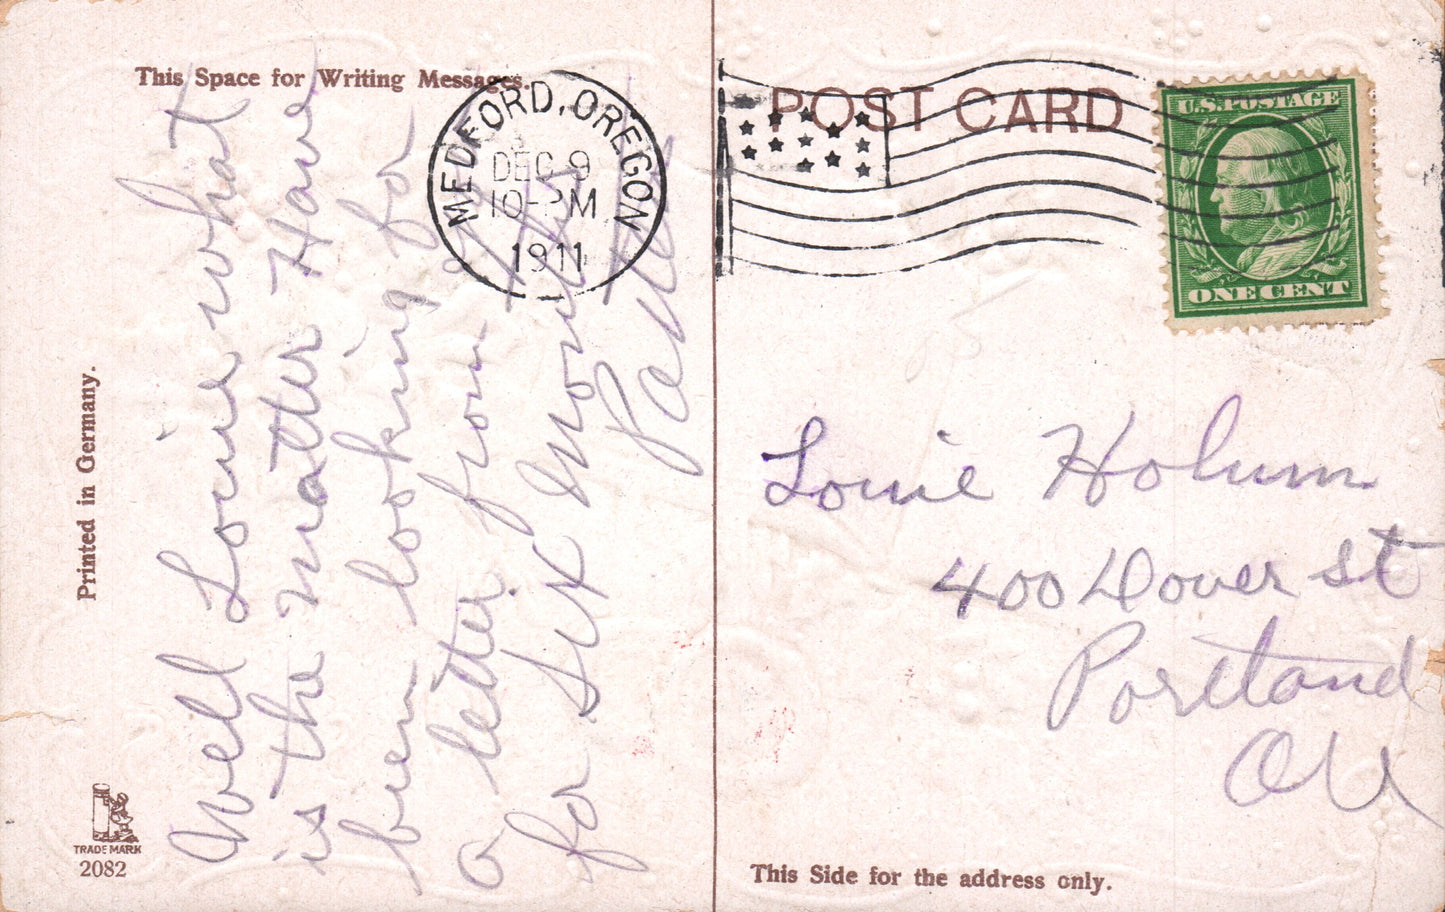 This Space for Writing Messages.
Well Louie what
is the matter Have
been looking for
a letter from
for six months
MEDFORD, OREGON
DEC 9
10-PM
1911
POST CARD
U.S. POSTAGE
ONE CENT
Louie Holum
400 Dover St
Portland
Ore
Printed in Germany.
TRADE MARK
2082
This Side for the address only.